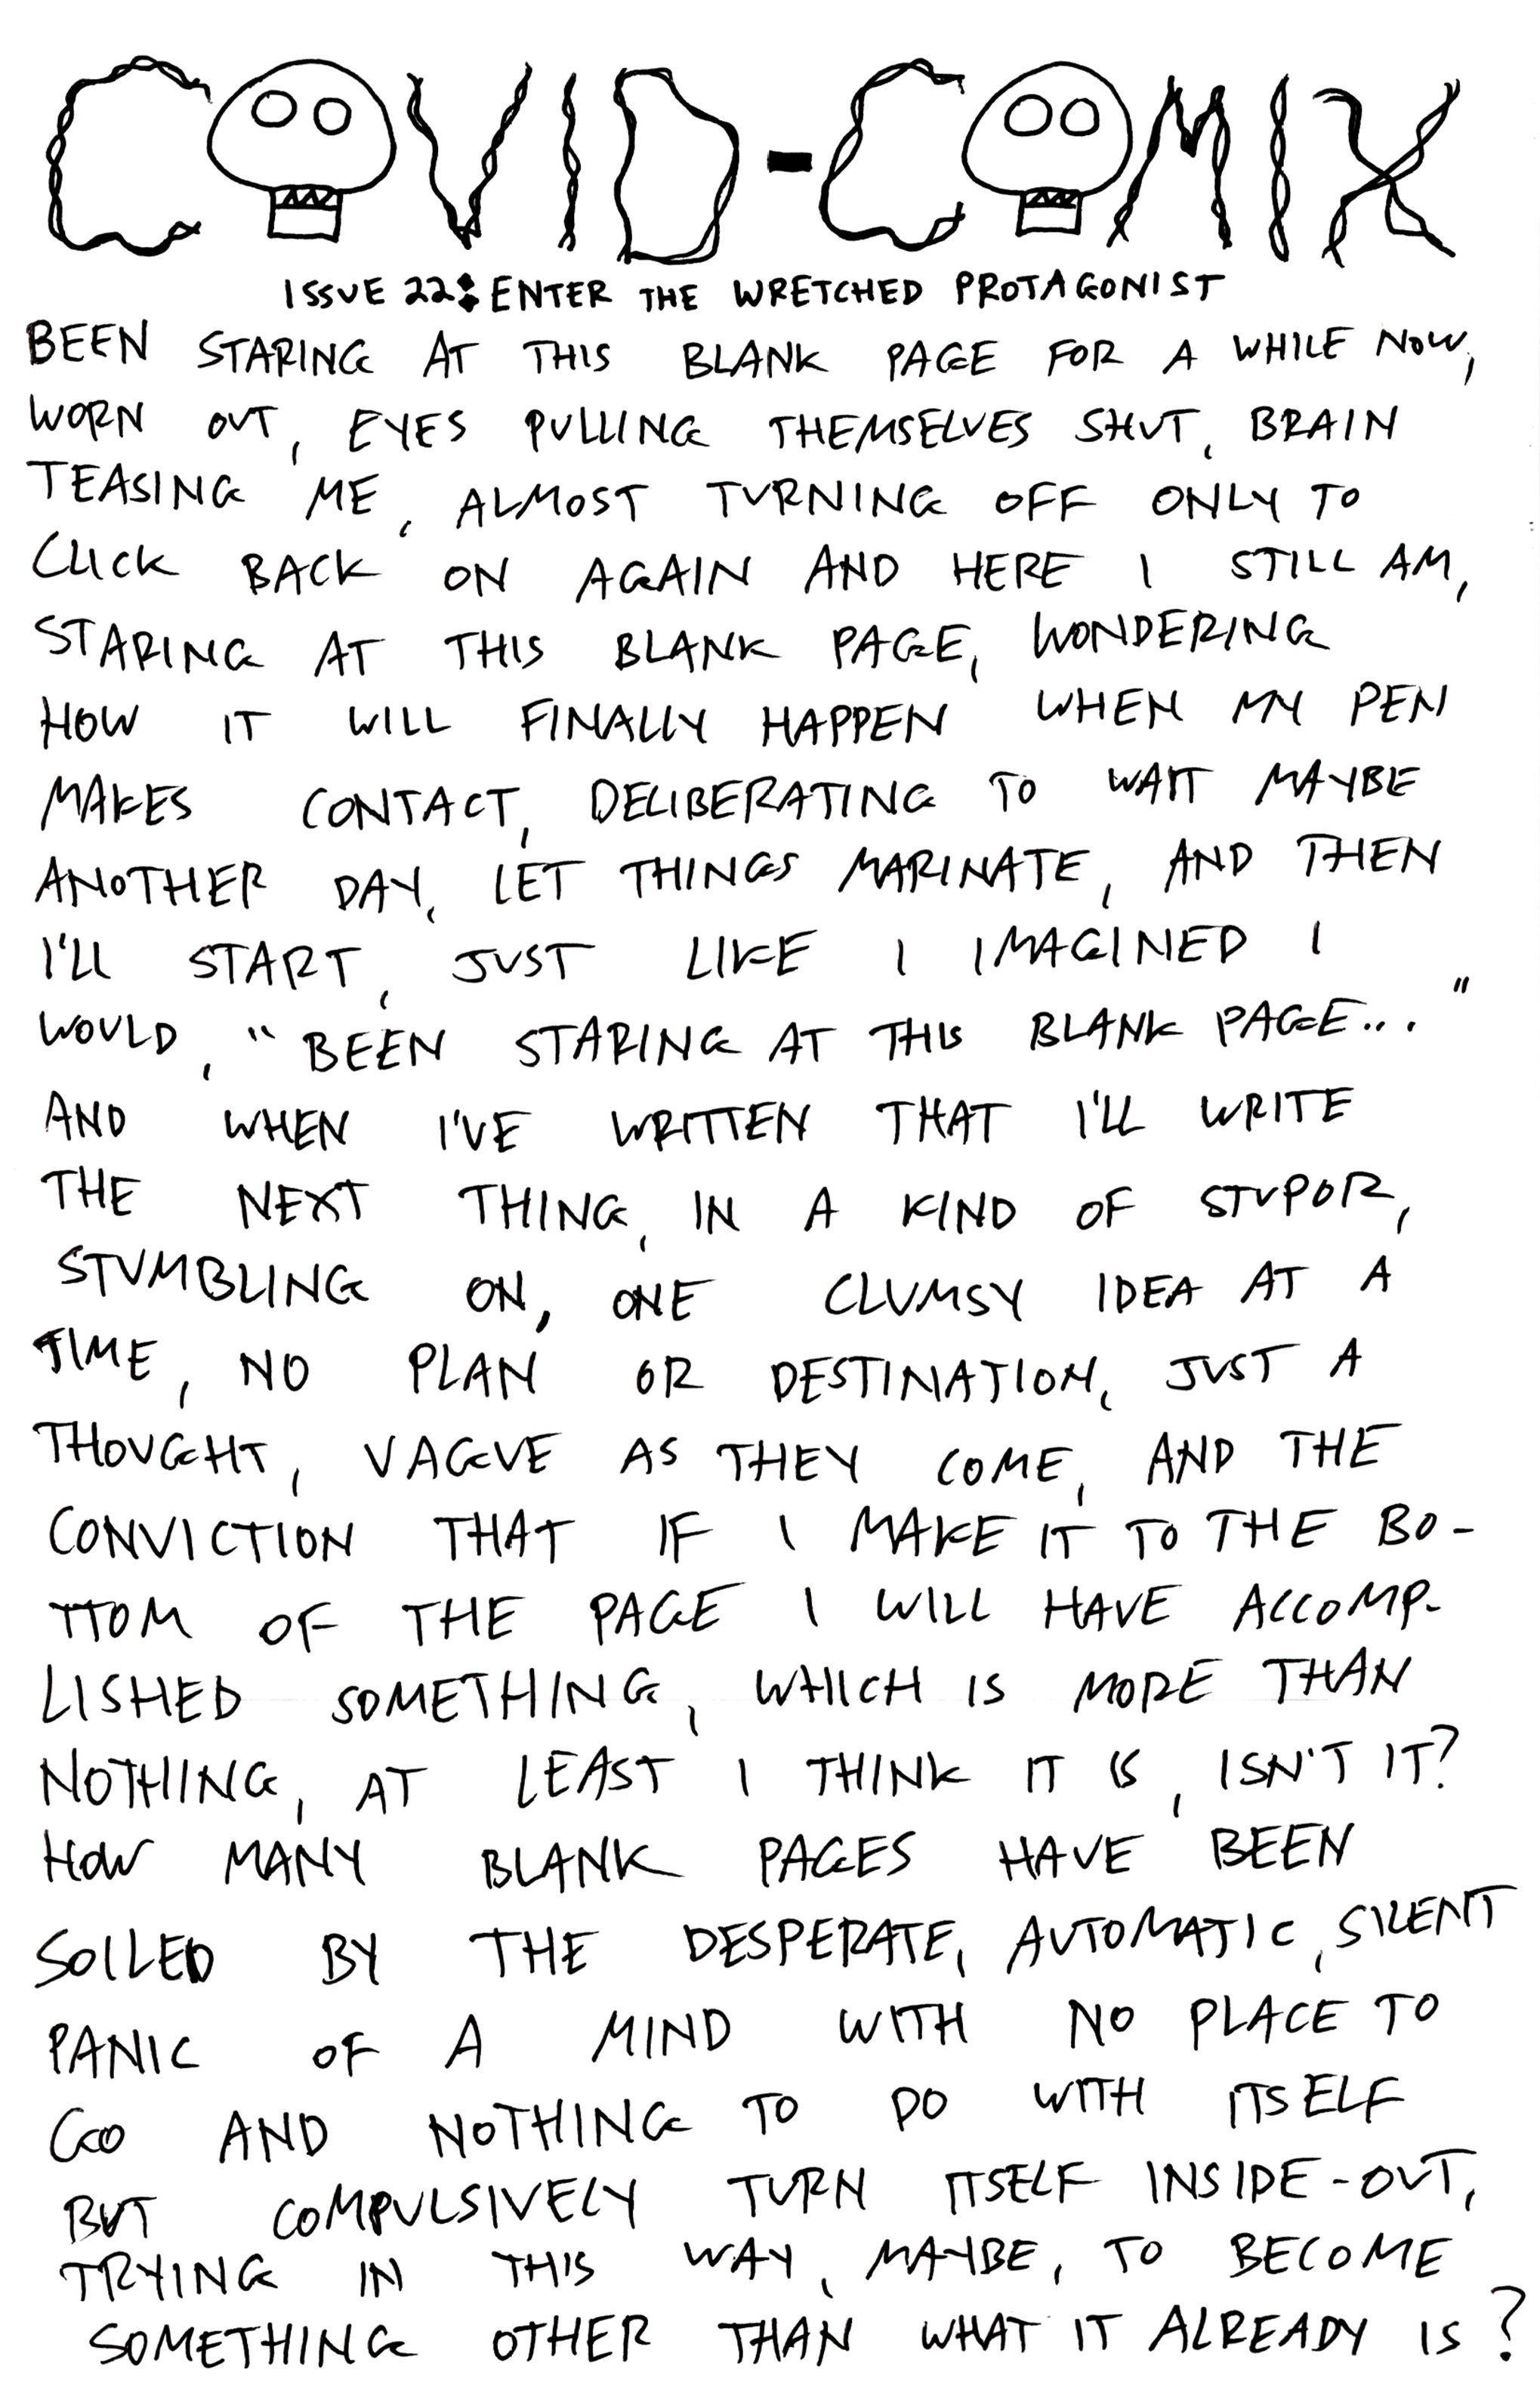 COVID-COMIX
ISSUE 22: ENTER THE WRETCHED PROTAGONIST
BEEN STARING AT THIS BLANK PAGE FOR A WHILE NOW,
WORN OUT, EYES PULLING THEMSELVES SHUT, BRAIN
TEASING ME, ALMOST TURNING OFF ONLY TO
CLICK BACK ON AGAIN AND HERE I STILL AM,
STARING AT THIS BLANK PAGE, WONDERING
HOW IT WILL FINALLY HAPPEN WHEN MY PEN
MAKES CONTACT, DELIBERATING TO WAIT MAYBE
ANOTHER DAY, LET THINGS MARINATE, AND THEN
I'LL START, JUST LIKE I IMAGINED I
WOULD, "BEEN STARING AT THIS BLANK PAGE..."
AND WHEN I'VE WRITTEN THAT I'LL WRITE
THE NEXT THING, IN A KIND OF STUPOR,
STUMBLING ON, ONE CLUMSY IDEA AT A
TIME, NO PLAN OR DESTINATION, JUST A
THOUGHT, VAGUE AS THEY COME, AND THE
CONVICTION THAT IF I MAKE IT TO THE BO-
TTOM OF THE PAGE I WILL HAVE ACCOMP-
LISHED SOMETHING, WHICH IS MORE THAN
NOTHING, AT LEAST I THINK IT IS, ISN'T IT?
HOW MANY BLANK PAGES HAVE BEEN
SOILED BY THE DESPERATE, AUTOMATIC, SILENT
PANIC OF A MIND WITH NO PLACE TO
GO AND NOTHING TO DO WITH ITSELF
BUT COMPULSIVELY TURN ITSELF INSIDE-OUT,
TRYING IN THIS WAY, MAYBE, TO BECOME
SOMETHING OTHER THAN WHAT IT ALREADY IS?